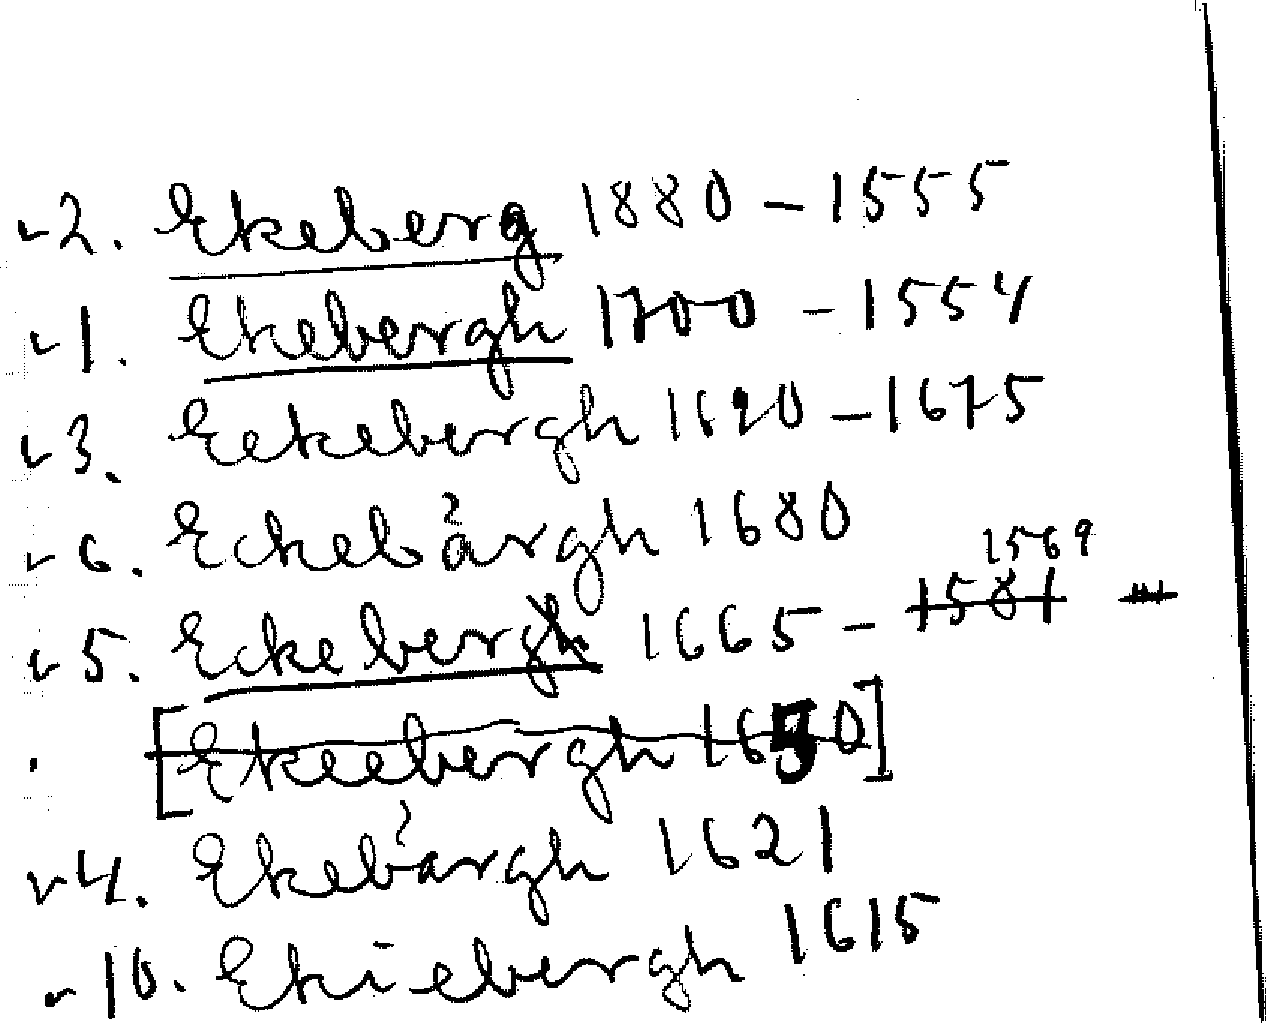 2. Ekeberg 1880 - 1555
1. Ekebergh 1700 - 1554
3. Eekebergh 1690 - 1675
6. Eckebårgh 1680
5. Eckebergh 1665 - 1581 1569
[Ekeebergh 1650]
4. Ekebårgh 1621
10. Ekiebergh 1615